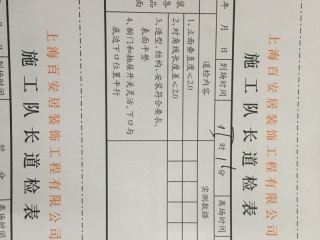 上海百安居装饰工程有限公司
施工队长道检表
年 月 日 到场时间 时 分 离场时间
道检内容 实测数据
1、立面垂直度≤2.0
2、对角线长度差≤2.0
3、造型、结构、安装符合要求,
表面平整
4、橱门和抽屉开关灵活、下口与
底边下口位置平行
上海百安居装饰工程有限公司
施工队长道检表
到场时间 时 分 离场时间